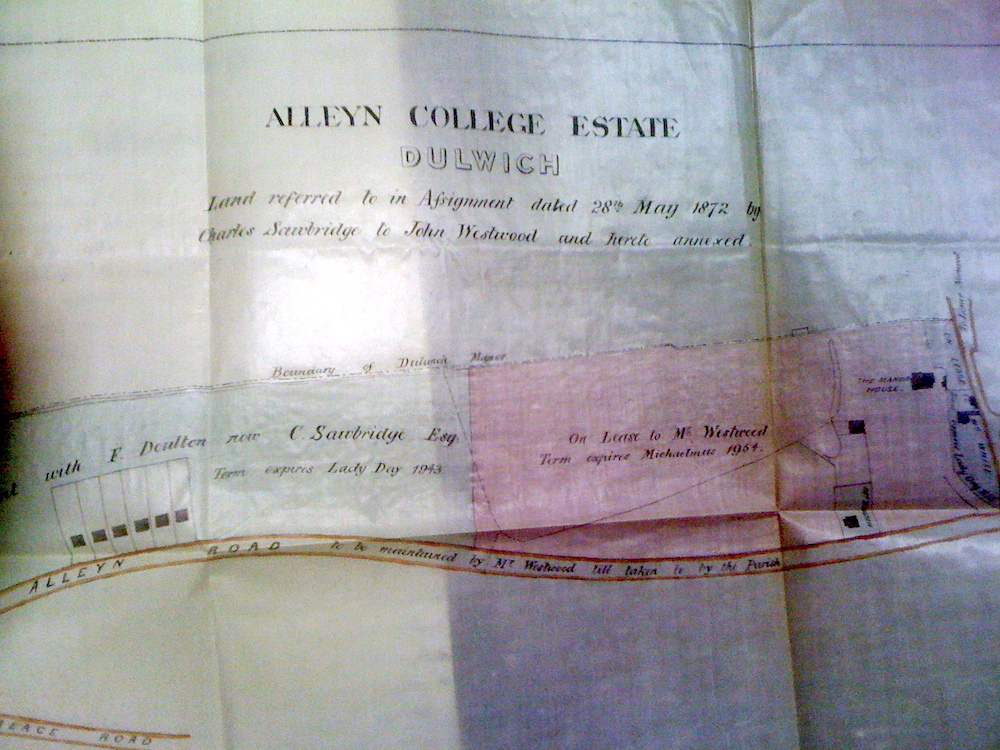 ALLEYN COLLEGE ESTATE
DULWICH
Land referred to in Aſsignment dated 28th May 1872 by
Charles Sawbridge to John Westwood and hereto annexed.
Boundary of Dulwich Manor
with F. Doulton now C. Sawbridge Esq.
Term expires Lady Day 1943.
On Lease to Mr Westwood
Term expires Michaelmas 1954.
THE MANOR
HOUSE.
ALLEYN ROAD to be maintained by Mr Westwood till taken to by the Parish
ROAD